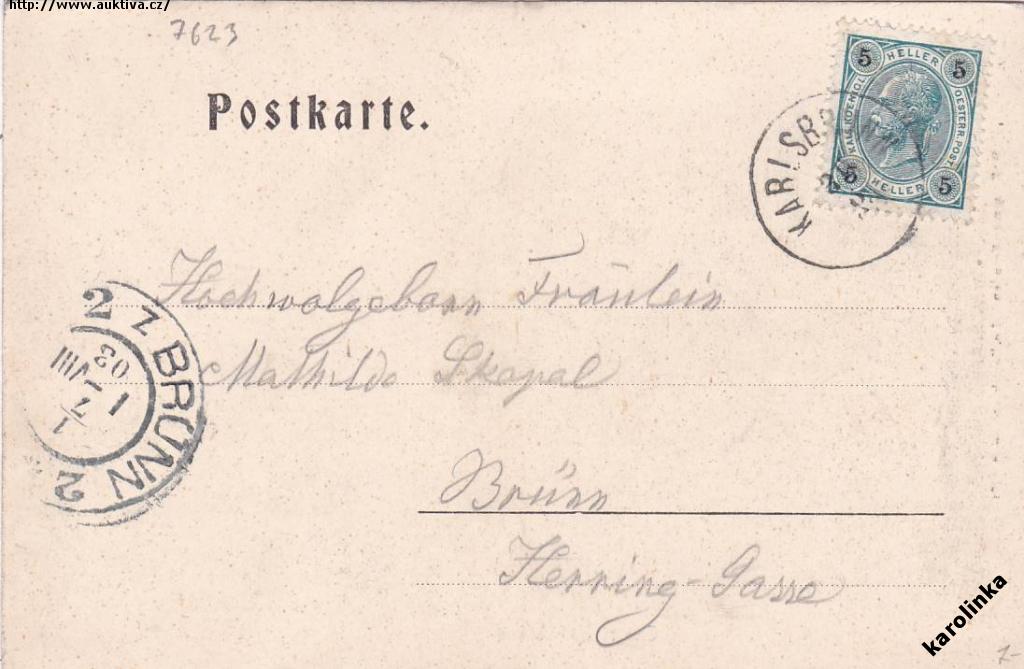 http://www.auktiva.cz/
7623
Postkarte.
5 HELLER 5
KAIS. KOENIGL. OESTERR. POST
5 HELLER 5
KARLSBRUNN
Hochwolgeborn Fräulein
Mathilde Skapal
Brünn
Herring-Gasse
2 BRÜNN 2
VIII
03
karolinka
7-